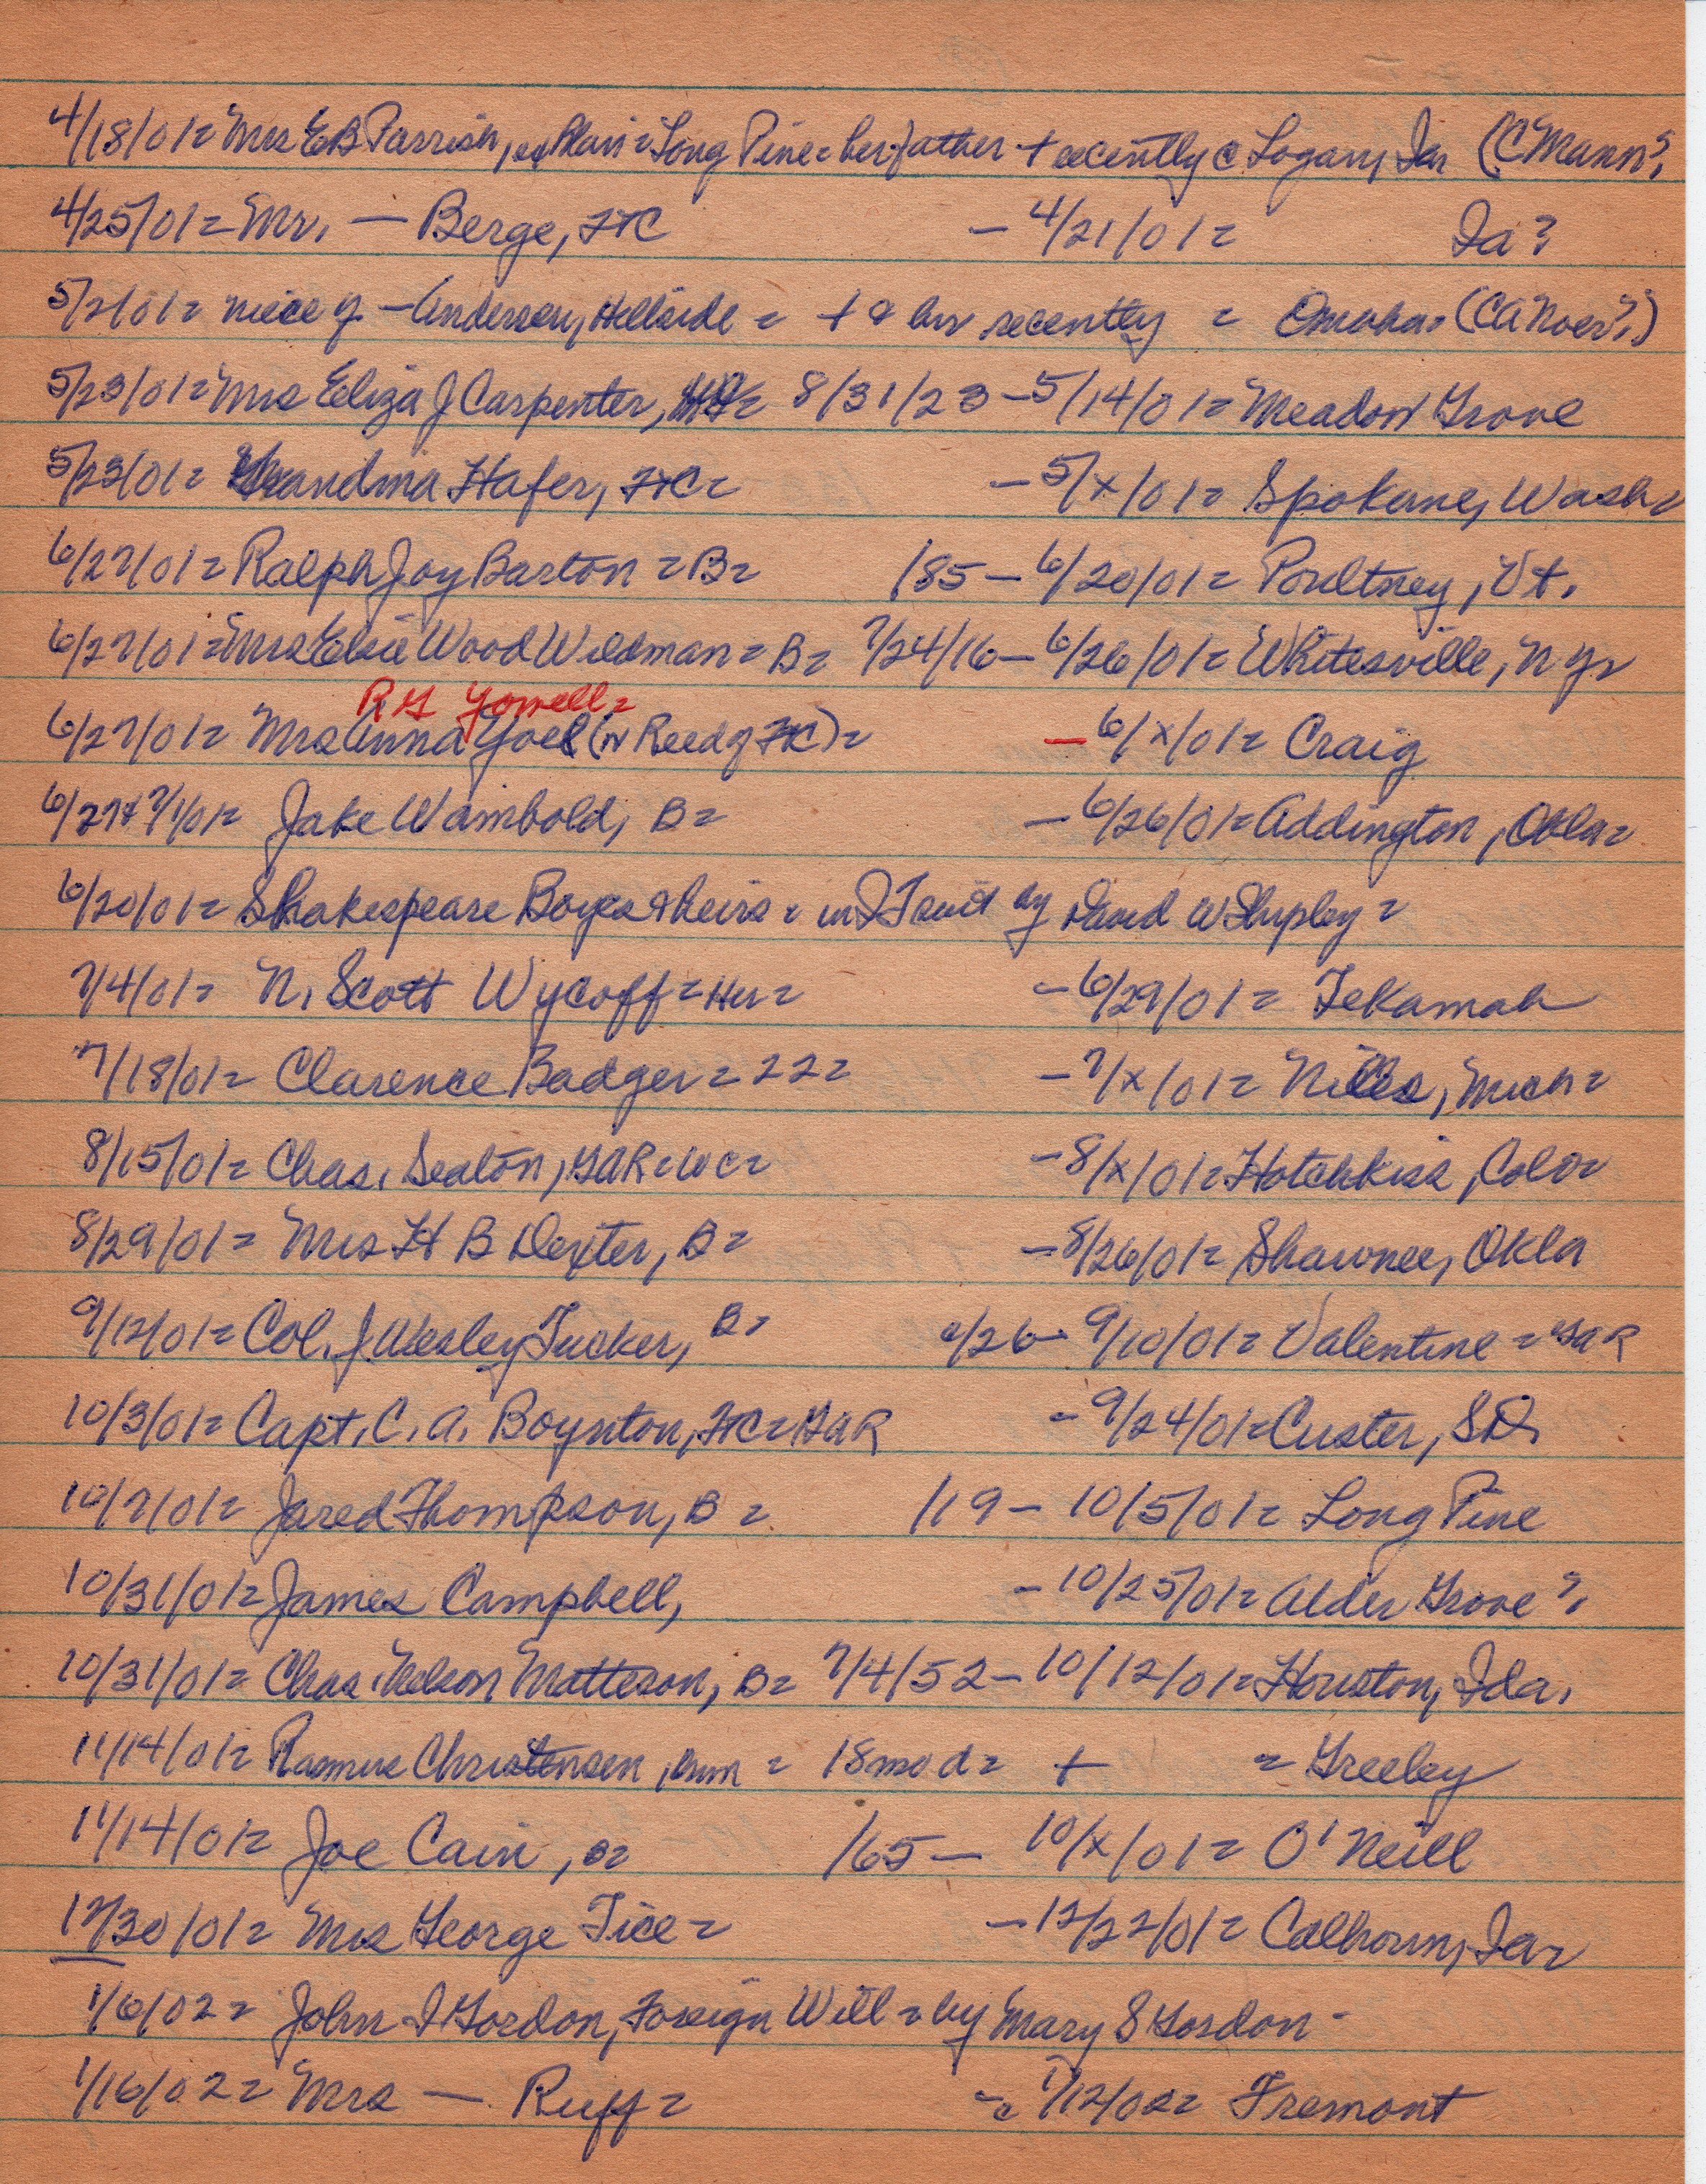 4/18/01= Mrs EB Parrish, Plain= Long Pine= her father + recently @ Logan, Ia= (C Mann?,
4/25/01= Mr. — Berge, HC — 4/21/01= Ia?
5/2/01= niece of — Anderson, Hillside = + @ her recently = Omaha= (CA Noer?.)
5/23/01= Mrs Eliza J Carpenter, 8/31/23 — 5/14/01= Meadow Grove
5/23/01= Grandma Hafer, HC= — 5/x/01= Spokane, Wash=
6/27/01= Ralph Joy Barton = B= /85 — 6/20/01= Poultney, Vt.
6/27/01= Mrs Elsie Wood Wildman = B= 7/24/16 — 6/26/01= Whitesville, N Y=
RG Yowell=
6/27/01= Mrs Anna Yoel (n Reed of HC)= — 6/x/01= Craig
6/27+7/1/01= Jake Wambold, B= — 6/26/01= Addington, Okla=
6/20/01= Shakespeare Boyes & heirs = in by David W Shipley=
7/4/01= N. Scott Wycoff = Her= — 6/29/01= Tekamah
7/18/01= Clarence Badger = 22= — 7/x/01= Niles, Mich=
8/15/01= Chas. Seaton, GAR= WC= — 8/x/01= Hotchkiss, Colo=
8/29/01= Mrs H B Dexter, B= — 8/26/01= Shawnee, Okla
9/12/01= Col. J Wesley Tucker, B= c/26— 9/10/01= Valentine = GAR
10/3/01= Capt. C. A. Boynton, HC= GAR — 9/24/01= Custer, SD.
10/7/01= Jared Thompson, B= /19 — 10/5/01= Long Pine
10/31/01= James Campbell, — 10/25/01= Alder Grove?.
10/31/01= Chas. Nelson Matteson, B= 7/4/52 — 10/12/01= Houston, Ida.
11/14/01= Rasmus Christensen, = 18 mo d= + = Greeley
11/14/01= Joe Cain, B= /65 — 10/x/01= O'Neill
12/30/01= Mrs George Tice= — 12/22/01= Calhoun, Ia=
1/6/02= John I Gordon, Foreign Will = by Mary S Gordon -
1/16/02= Mrs — Ruff= — 1/12/02= Fremont